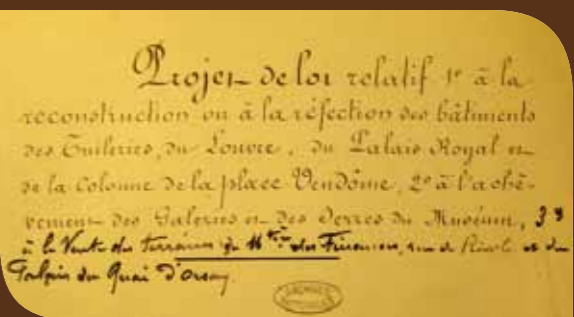 Projet de loi relatif 1º à la
reconstruction ou à la réfection des bâtiments
des Tuileries, du Louvre, du Palais Royal et
de la Colonne de la place Vendôme, 2º à l'achè-
vement des Galeries et des Serres du Muséum, 3º
à la Vente des terrains du Mtère des Finances, rue de Rivoli et du
Palais du Quai d'Orsay.
ARCHIVES